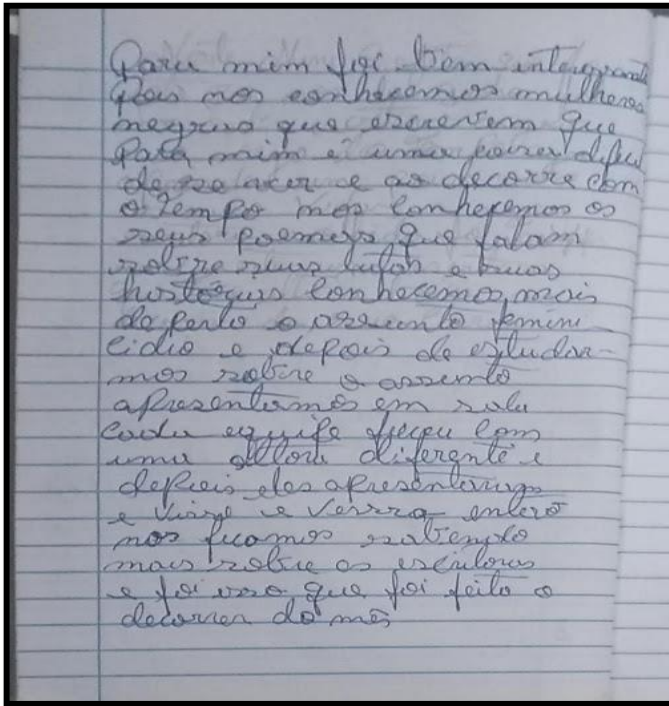 Para mim foi bem intereçante
Pois nos conhecemos mulheres
negras que escrevem que
Para mim é uma coisa dificil
de se ver e ao decorre com
o tempo nos conhecemos os
seus poemas que falam
sobre suas lutas e suas
historias conhecemos mais
de perto o assunto femini
cidio e depois de estudar-
mos sobre o assunto
apresentamos em sala
cada equipe ficou com
uma altora diferente e
depois eles apresentaram
e visse e verssa entero
nos ficamos sabendo
mais sobre as escritoras
e foi isso que foi feito o
decorrer do mês